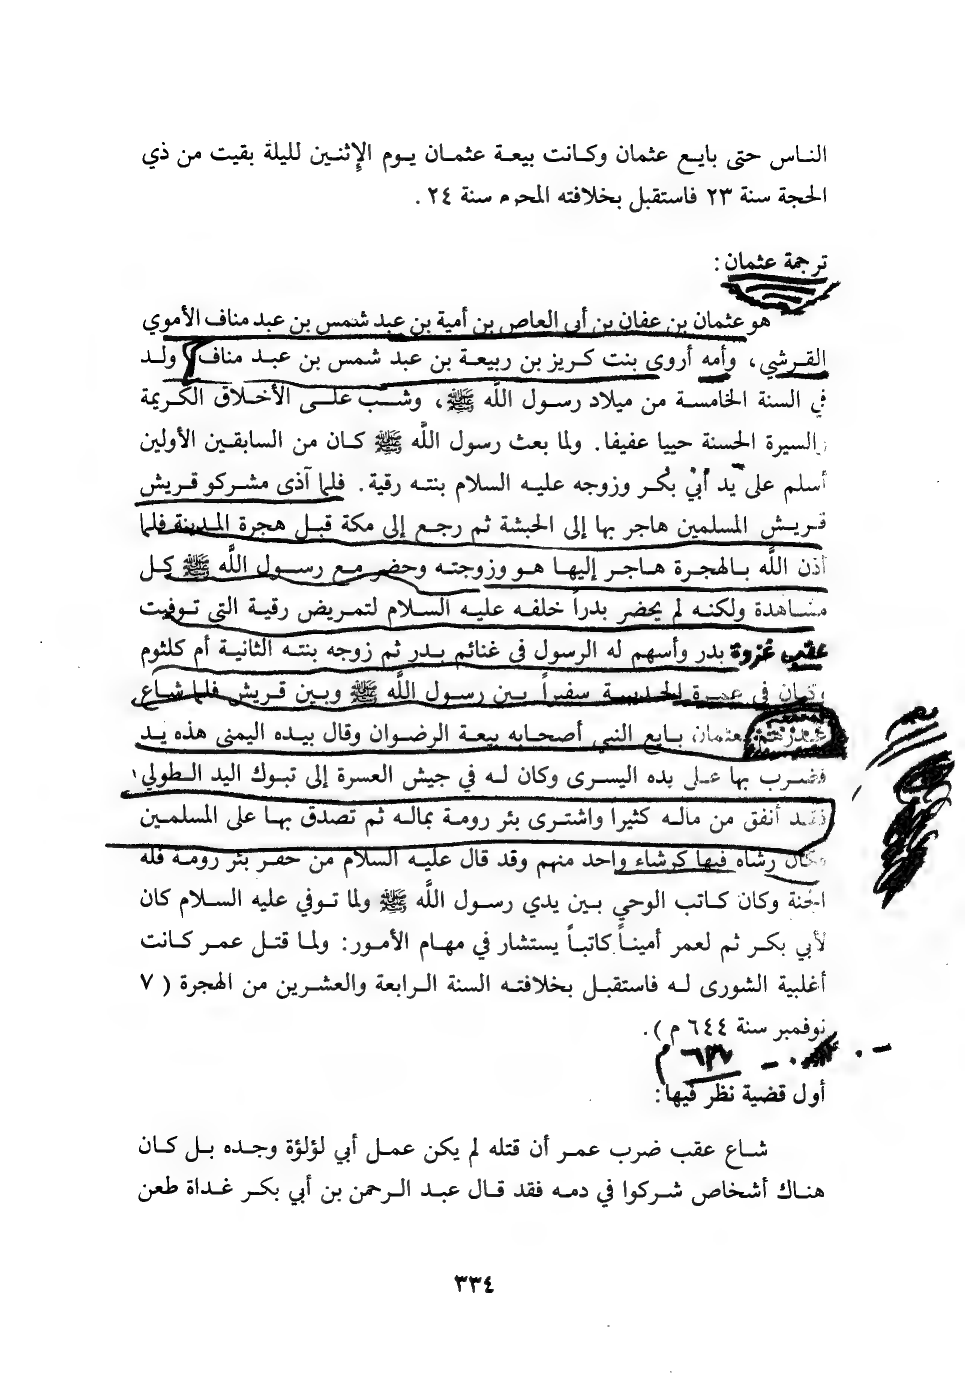 الناس حتى بايع عثمان وكانت بيعة عثمان يوم الإثنين لليلة بقيت من ذي
الحجة سنة ٢٣ فاستقبل بخلافته المحرم سنة ٢٤ .
ترجمة عثمان :
هو عثمان بن عفان بن أبي العاص بن أمية بن عبد شمس بن عبد مناف الأموي
القرشي، وأمه أروى بنت كريز بن ربيعة بن عبد شمس بن عبد مناف ولد
في السنة الخامسة من ميلاد رسول الله ﷺ، وشب على الأخلاق الكريمة
والسيرة الحسنة حييا عفيفا. ولما بعث رسول الله ﷺ كان من السابقين الأولين
أسلم على يد أبي بكر وزوجه عليه السلام بنته رقية. فلما آذى مشركو قريش
قريش المسلمين هاجر بها إلى الحبشة ثم رجع إلى مكة قبل هجرة المدينة فلما
أذن الله بالهجرة هاجر إليها هو وزوجته وحضر مع رسول الله ﷺ كل
مشاهدة ولكنه لم يحضر بدراً خلفه عليه السلام لتمريض رقية التي توفيت
عقب غزوة بدر وأسهم له الرسول في غنائم بدر ثم زوجه بنته الثانية أم كلثوم
وكان في عمرة الحديبية سفيراً بين رسول الله ﷺ وبين قريش فلما شاع
بعثمان بايع النبي أصحابه بيعة الرضوان وقال بيده اليمنى هذه يد
فضرب بها على يده اليسرى وكان له في جيش العسرة إلى تبوك اليد الطولي
فقد أنفق من ماله كثيرا واشترى بئر رومة بماله ثم تصدق بها على المسلمين
وكان رشاه فيها كرشاء واحد منهم وقد قال عليه السلام من حفر بئر رومة فله
الجنة وكان كاتب الوحي بين يدي رسول الله ﷺ ولما توفي عليه السلام كان
لأبي بكر ثم لعمر أميناً كاتباً يستشار في مهام الأمور: ولما قتل عمر كانت
أغلبية الشورى له فاستقبل بخلافته السنة الرابعة والعشرين من الهجرة ( ٧
نوفمبر سنة ٦٤٤ م ).
أول قضية نظر فيها:
شاع عقب ضرب عمر أن قتله لم يكن عمل أبي لؤلؤة وجده بل كان
هناك أشخاص شركوا في دمه فقد قال عبد الرحمن بن أبي بكر غداة طعن
٣٣٤